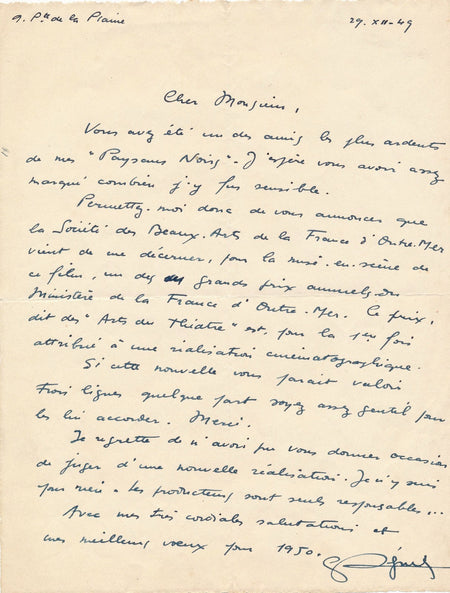 9. Pte de la Plaine
29. XII-49
Cher Monsieur,
Vous avez été un des amis les plus ardents
de mes "Paysans Noirs". J'espère vous avoir assez
marqué combien j'y fus sensible.
Permettez-moi donc de vous annoncer que
la Société des Beaux-Arts de la France d'Outre-Mer
vient de me décerner, pour la mise-en-scène de
ce film, un des grands prix annuels du
Ministère de la France d'Outre-Mer. Ce prix,
dit des "Arts du Théâtre" est, pour la 1ère fois
attribué à une réalisation cinématographique.
Si cette nouvelle vous paraît valoir
trois lignes quelque part soyez assez gentil pour
les lui accorder. Merci.
Je regrette de n'avoir pu vous donner occasion
de juger d'une nouvelle réalisation. Je n'y suis
pour rien. Les producteurs sont seuls responsables...
Avec mes très cordiales salutations et
mes meilleurs vœux pour 1950.